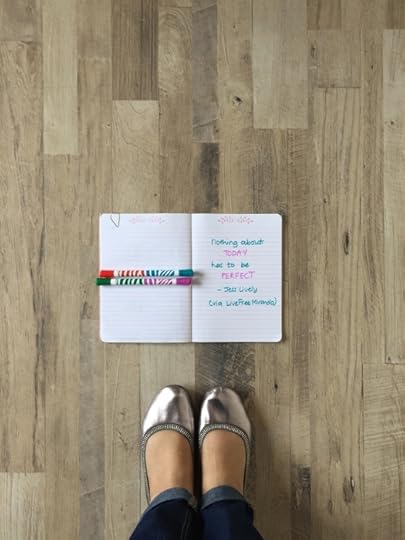 Nothing about
TODAY
has to be
PERFECT
- Jess Lively
(via LiveFreeMiranda)